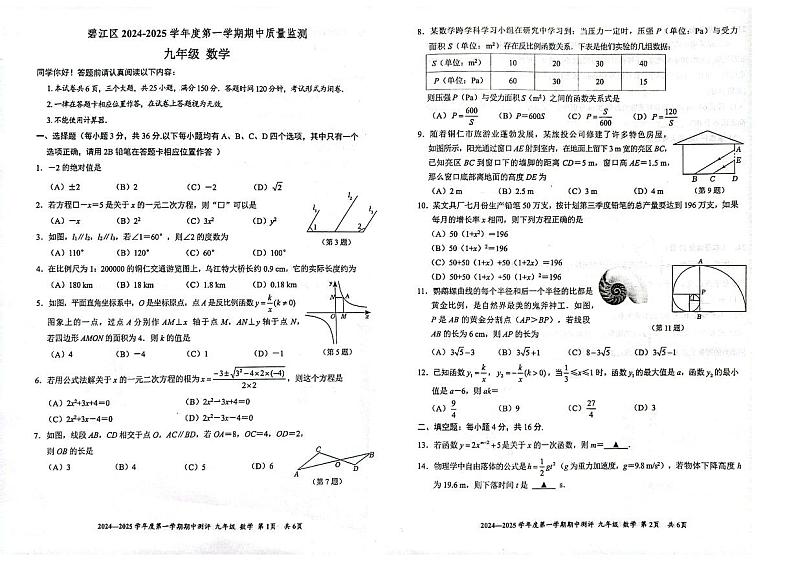 碧江区 2024-2025 学年度第一学期期中质量监测
九年级 数学
同学你好！答题前请认真阅读以下内容：
1.本试卷共6页，三个大题，共25小题，满分150分．答题时间120分钟，考试形式为闭卷．
2.一律在答题卡相应位置作答，在试卷上答题视为无效．
3.不能使用计算器．
一、选择题（每小题3分，共36分.以下每小题均有A、B、C、D四个选项，其中只有一个
选项正确，请用2B铅笔在答题卡相应位置作答）
1．-2的绝对值是
（A）±2 （B）2 （C）-2 （D）√2
2．若方程口-x=5是关于x的一元二次方程，则“口”可以是
（A）-x （B）2² （C）3x² （D）y²
3．如图，l₁∥l₂，l₂∥l₃，若∠1=60°，则∠2的度数为
（A）110° （B）120° （C）60° （D）100°
l₁ l₂ l₃ 1 2
（第3题）
4．在比例尺为1：200000的铜仁交通游览图上，乌江特大桥长约0.9 cm，它的实际长度约为
（A）180 km （B）18 km （C）1.8 km （D）0.18 km
5．如图，平面直角坐标系中，O是坐标原点，点A是反比例函数y=k/x(k≠0)
图象上的一点，过点A分别作AM⊥x轴于点M，AN⊥y轴于点N，
若四边形AMON的面积为4．则k的值是
（A）4 （B）-4 （C）1 （D）-1
y N A O M x
（第5题）
6．若用公式法解关于x的一元二次方程的根为x=(-3±√(3²-4×2×(-4)))/(2×2)，则这个方程是
（A）2x²+3x+4=0 （B）2x²-3x+4=0
（C）2x²+3x-4=0 （D）2x²-3x-4=0
7．如图，线段AB，CD相交于点O，AC∥BD，若OA=8，OC=4，OD=2，
则OB的长是
（A）3 （B）4 （C）5 （D）6
C B O A D
（第7题）
2024—2025学年度第一学期期中测评 九年级 数学 第1页 共6页
8．某数学跨学科学习小组在研究中学习到：当压力一定时，压强P（单位：Pa）与受力
面积S（单位：m²）存在反比例函数关系．下表是他们实验的几组数据：
S（单位：m²） 10 20 30 40
P（单位：Pa） 60 30 20 15
则压强P（Pa）与受力面积S（m²）之间的函数关系式是
（A）P=600/S （B）P=600S （C）P=S/600 （D）P=120/S
9．随着铜仁市旅游业蓬勃发展，某旅投公司修建了许多特色房屋，
如图所示，阳光通过窗口AE射到室内，在地面上留下3 m宽的亮区BC，
已知亮区BC到窗口下的墙脚的距离CD=5 m，窗口高AE=1.5 m，
那么窗口底部离地面的高度DE为
（A）2 m （B）2.5 m （C）3 m （D）4 m
A E B C D
（第9题）
10．某文具厂七月份生产铅笔50万支，按计划第三季度铅笔的总产量要达到196万支，如果
每月的增长率x相同，则下列方程正确的是
（A）50（1+x²）=196
（B）50（1+x）²=196
（C）50+50（1+x）+50（1+2x）=196
（D）50+50（1+x）+50（1+x）²=196
11．鹦鹉螺曲线的每个半径和后一个半径的比都是
黄金比例，是自然界最美的鬼斧神工．如图，
P是AB的黄金分割点（AP＞BP）．若线段
AB的长为6 cm，则AP的长为
（A）3√5-3 （B）3√5+1 （C）8-3√5 （D）3√5-1
A P B
（第11题）
12．已知函数y₁=k/x，y₂=-k/x(k>0)，当1/3≤x≤1时，函数y₁的最大值是a，函数y₂的最小
值是a-6，则ak=
（A）9/4 （B）9 （C）27/4 （D）3
二、填空题：每小题4分，共16分．
13．若函数y=2xᵐ⁻²+5是关于x的一次函数，则m= ▲ ．
14．物理学中自由落体的公式是h=1/2gt²（g为重力加速度，g=9.8 m/s²），若物体下降高度h
为19.6 m，则下落时间t是 ▲ s．
2024—2025学年度第一学期期中测评 九年级 数学 第2页 共6页